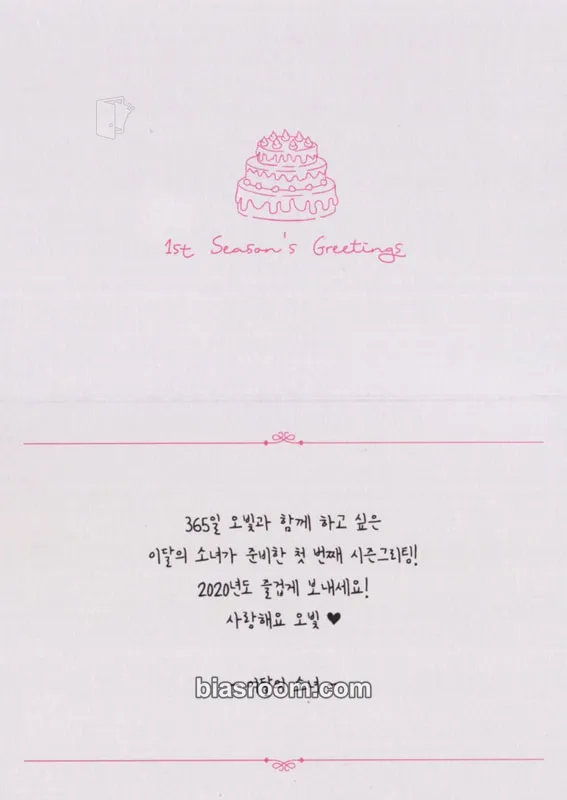 1st Season's Greetings
365일 오빛과 함께 하고 싶은
이달의 소녀가 준비한 첫 번째 시즌그리팅!
2020년도 즐겁게 보내세요!
사랑해요 오빛 ♥
이달의 소녀 -
biasroom.com